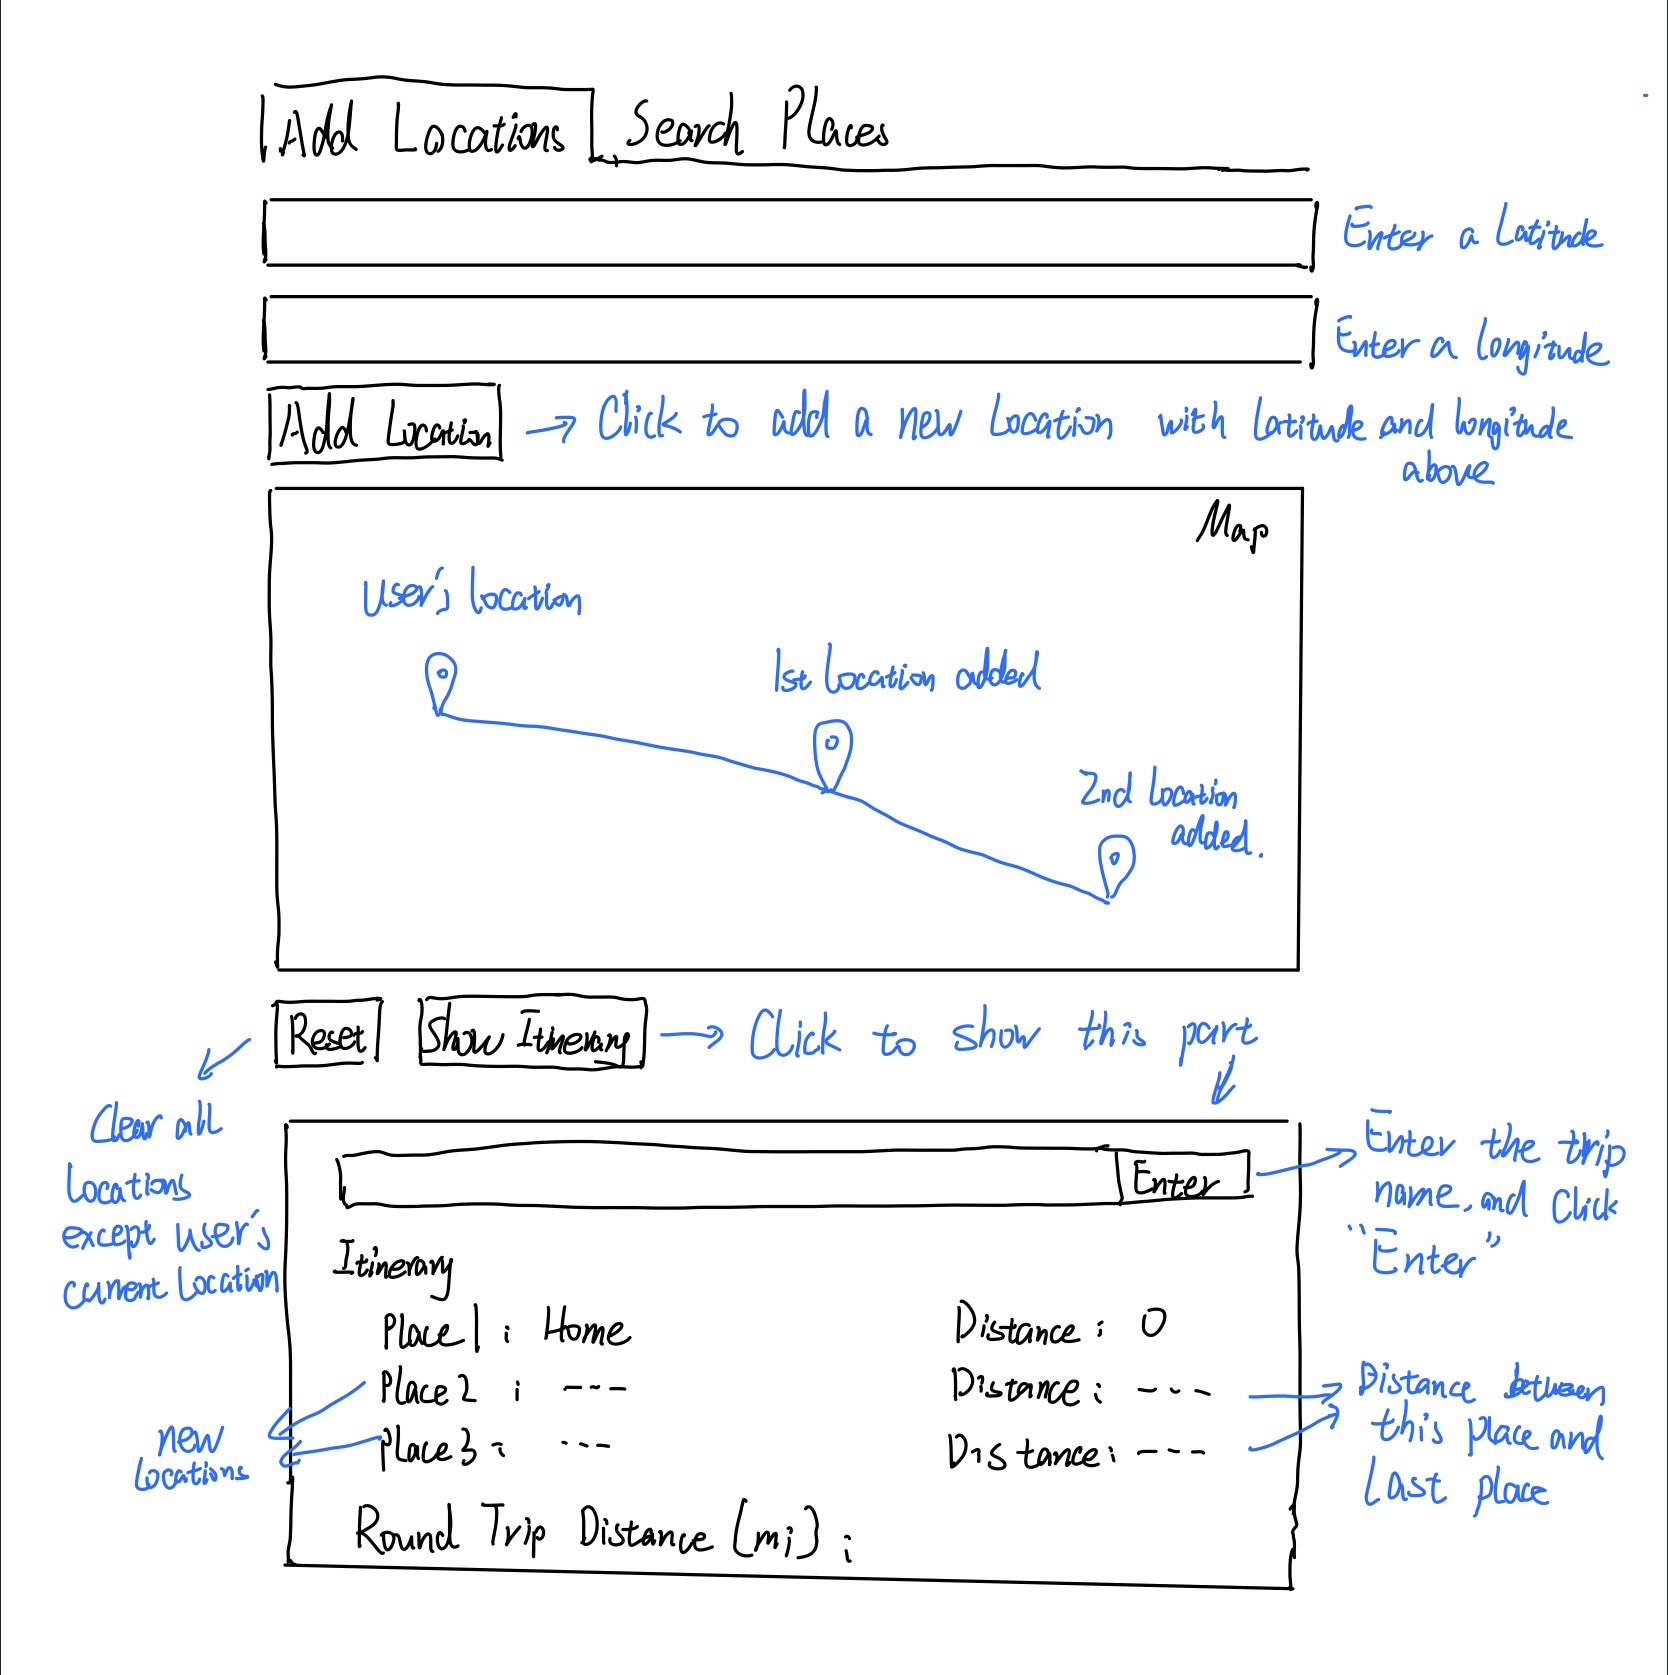 Add Locations Search Places
Enter a Latitude
Enter a longitude
Add Location → Click to add a new Location with latitude and longitude
above
Map
User's location
1st location added
2nd location
added.
Reset Show Itinerary → Click to show this part
Clear all
locations
except user's
current location
Enter
Enter the trip
name, and click
"Enter"
Itinerary
Place 1 : Home Distance : 0
Place 2 : --- Distance : ---
Place 3 : --- Distance : ---
new
locations
Distance between
this place and
last place
Round Trip Distance (mi) :